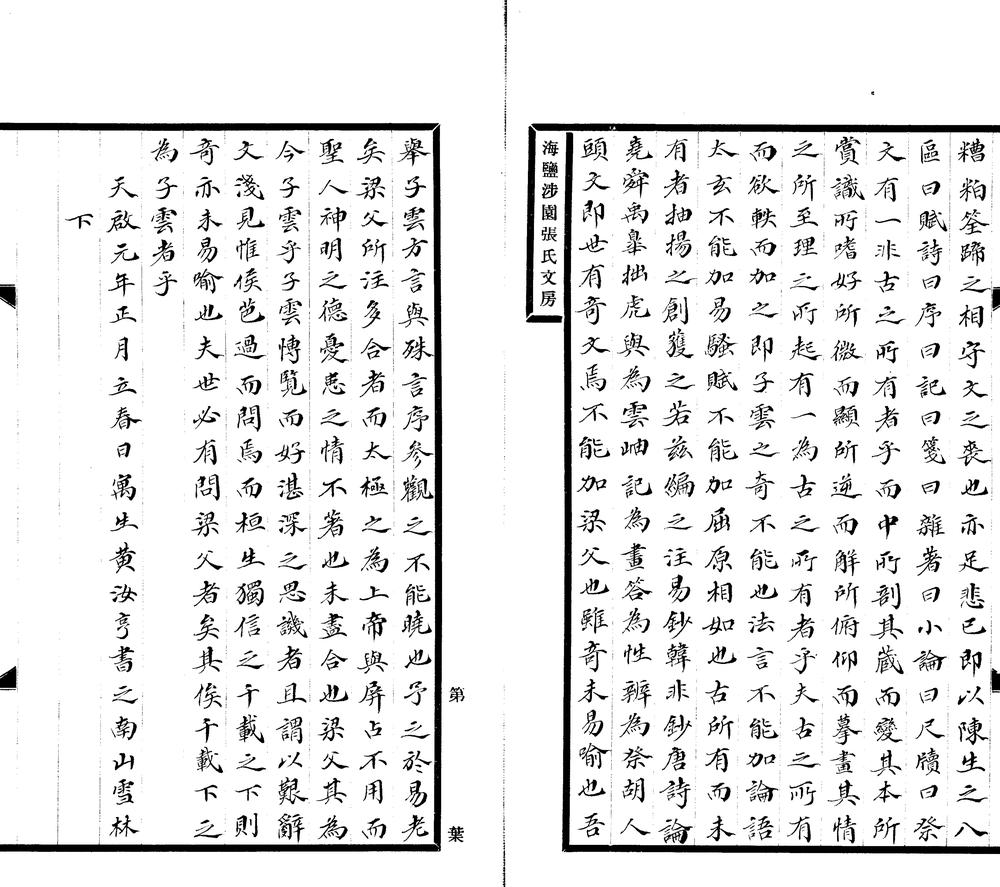 糟粕筌蹄之相守文之喪也亦足悲已即以陳生之八
區曰賦詩曰序曰記曰箋曰雜著曰小論曰尺牘曰祭
文有一非古之所有者乎而中所剖其蔵而變其本所
賞識所嗜好所微而顯所逆而解所俯仰而摹畫其情
之所至理之所起有一為古之所有者乎夫古之所有
而欲軼而加之即子雲之奇不能也法言不能加論語
太玄不能加易騷賦不能加屈原相如也古所有而未
有者抽揚之創獲之若兹編之注易鈔韓非鈔唐詩論
堯舜禹臯拙虎與為雲岫記為畫答為性辨為祭胡人
頭文即世有奇文焉不能加梁父也雖奇未易喻也吾
海鹽涉園張氏文房
舉子雲方言與殊言序參觀之不能曉也予之於易老
矣梁父所注多合者而太極之為上帝與屏占不用而
聖人神明之德憂患之情不著也未盡合也梁父其為
今子雲乎子雲慱覧而好湛深之思譏者且謂以艱辭
文淺見惟侯芭過而問焉而桓生獨信之千載之下則
奇亦未易喻也夫世必有問梁父者矣其俟千載下之
為子雲者乎
天啟元年正月立春日寓生黄汝亨書之南山雪林
下
第
葉